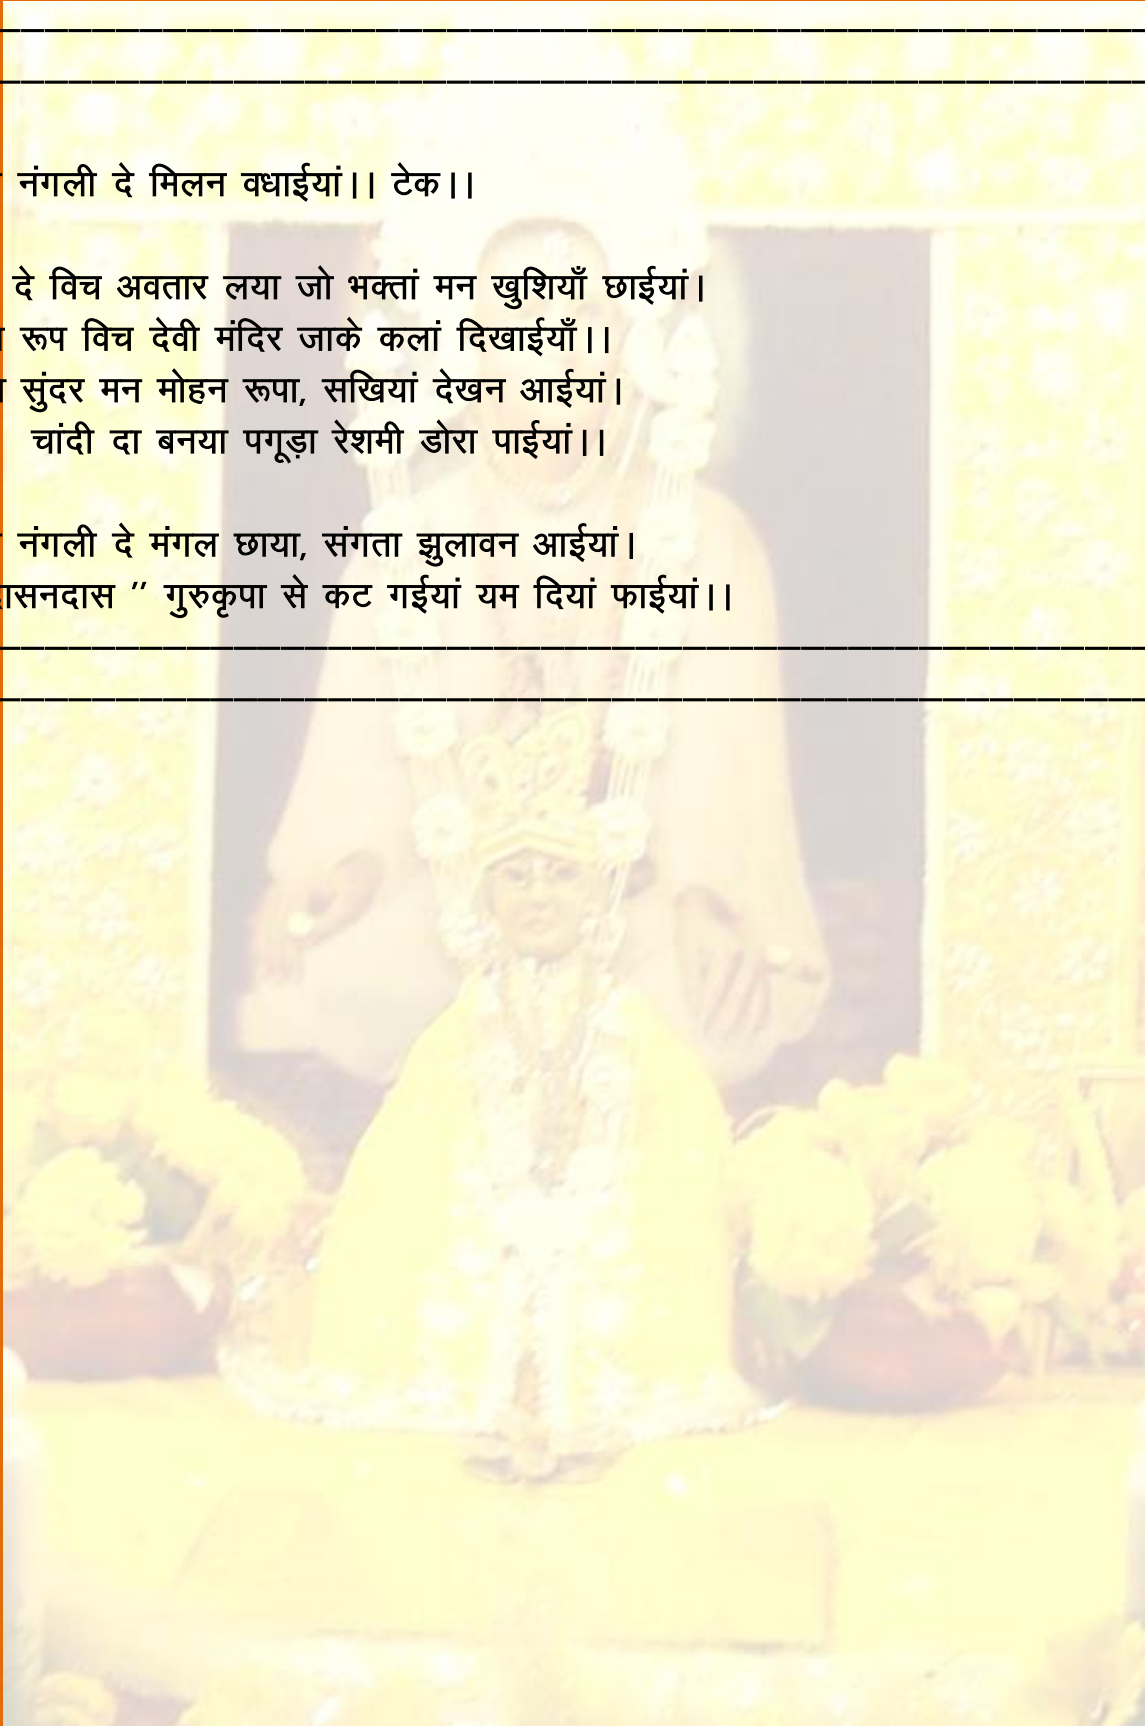 नंगली दे मिलन वधाईयां।। टेक।।
दे विच अवतार लया जो भक्तां मन खुशियाँ छाईयां।
रूप विच देवी मंदिर जाके कलां दिखाईयाँ।।
सुंदर मन मोहन रूपा, सखियां देखन आईयां।
चांदी दा बनया पगूड़ा रेशमी डोरा पाईयां।।
नंगली दे मंगल छाया, संगता झुलावन आईयां।
ासनदास ’’ गुरुकृपा से कट गईयां यम दियां फाईयां।।